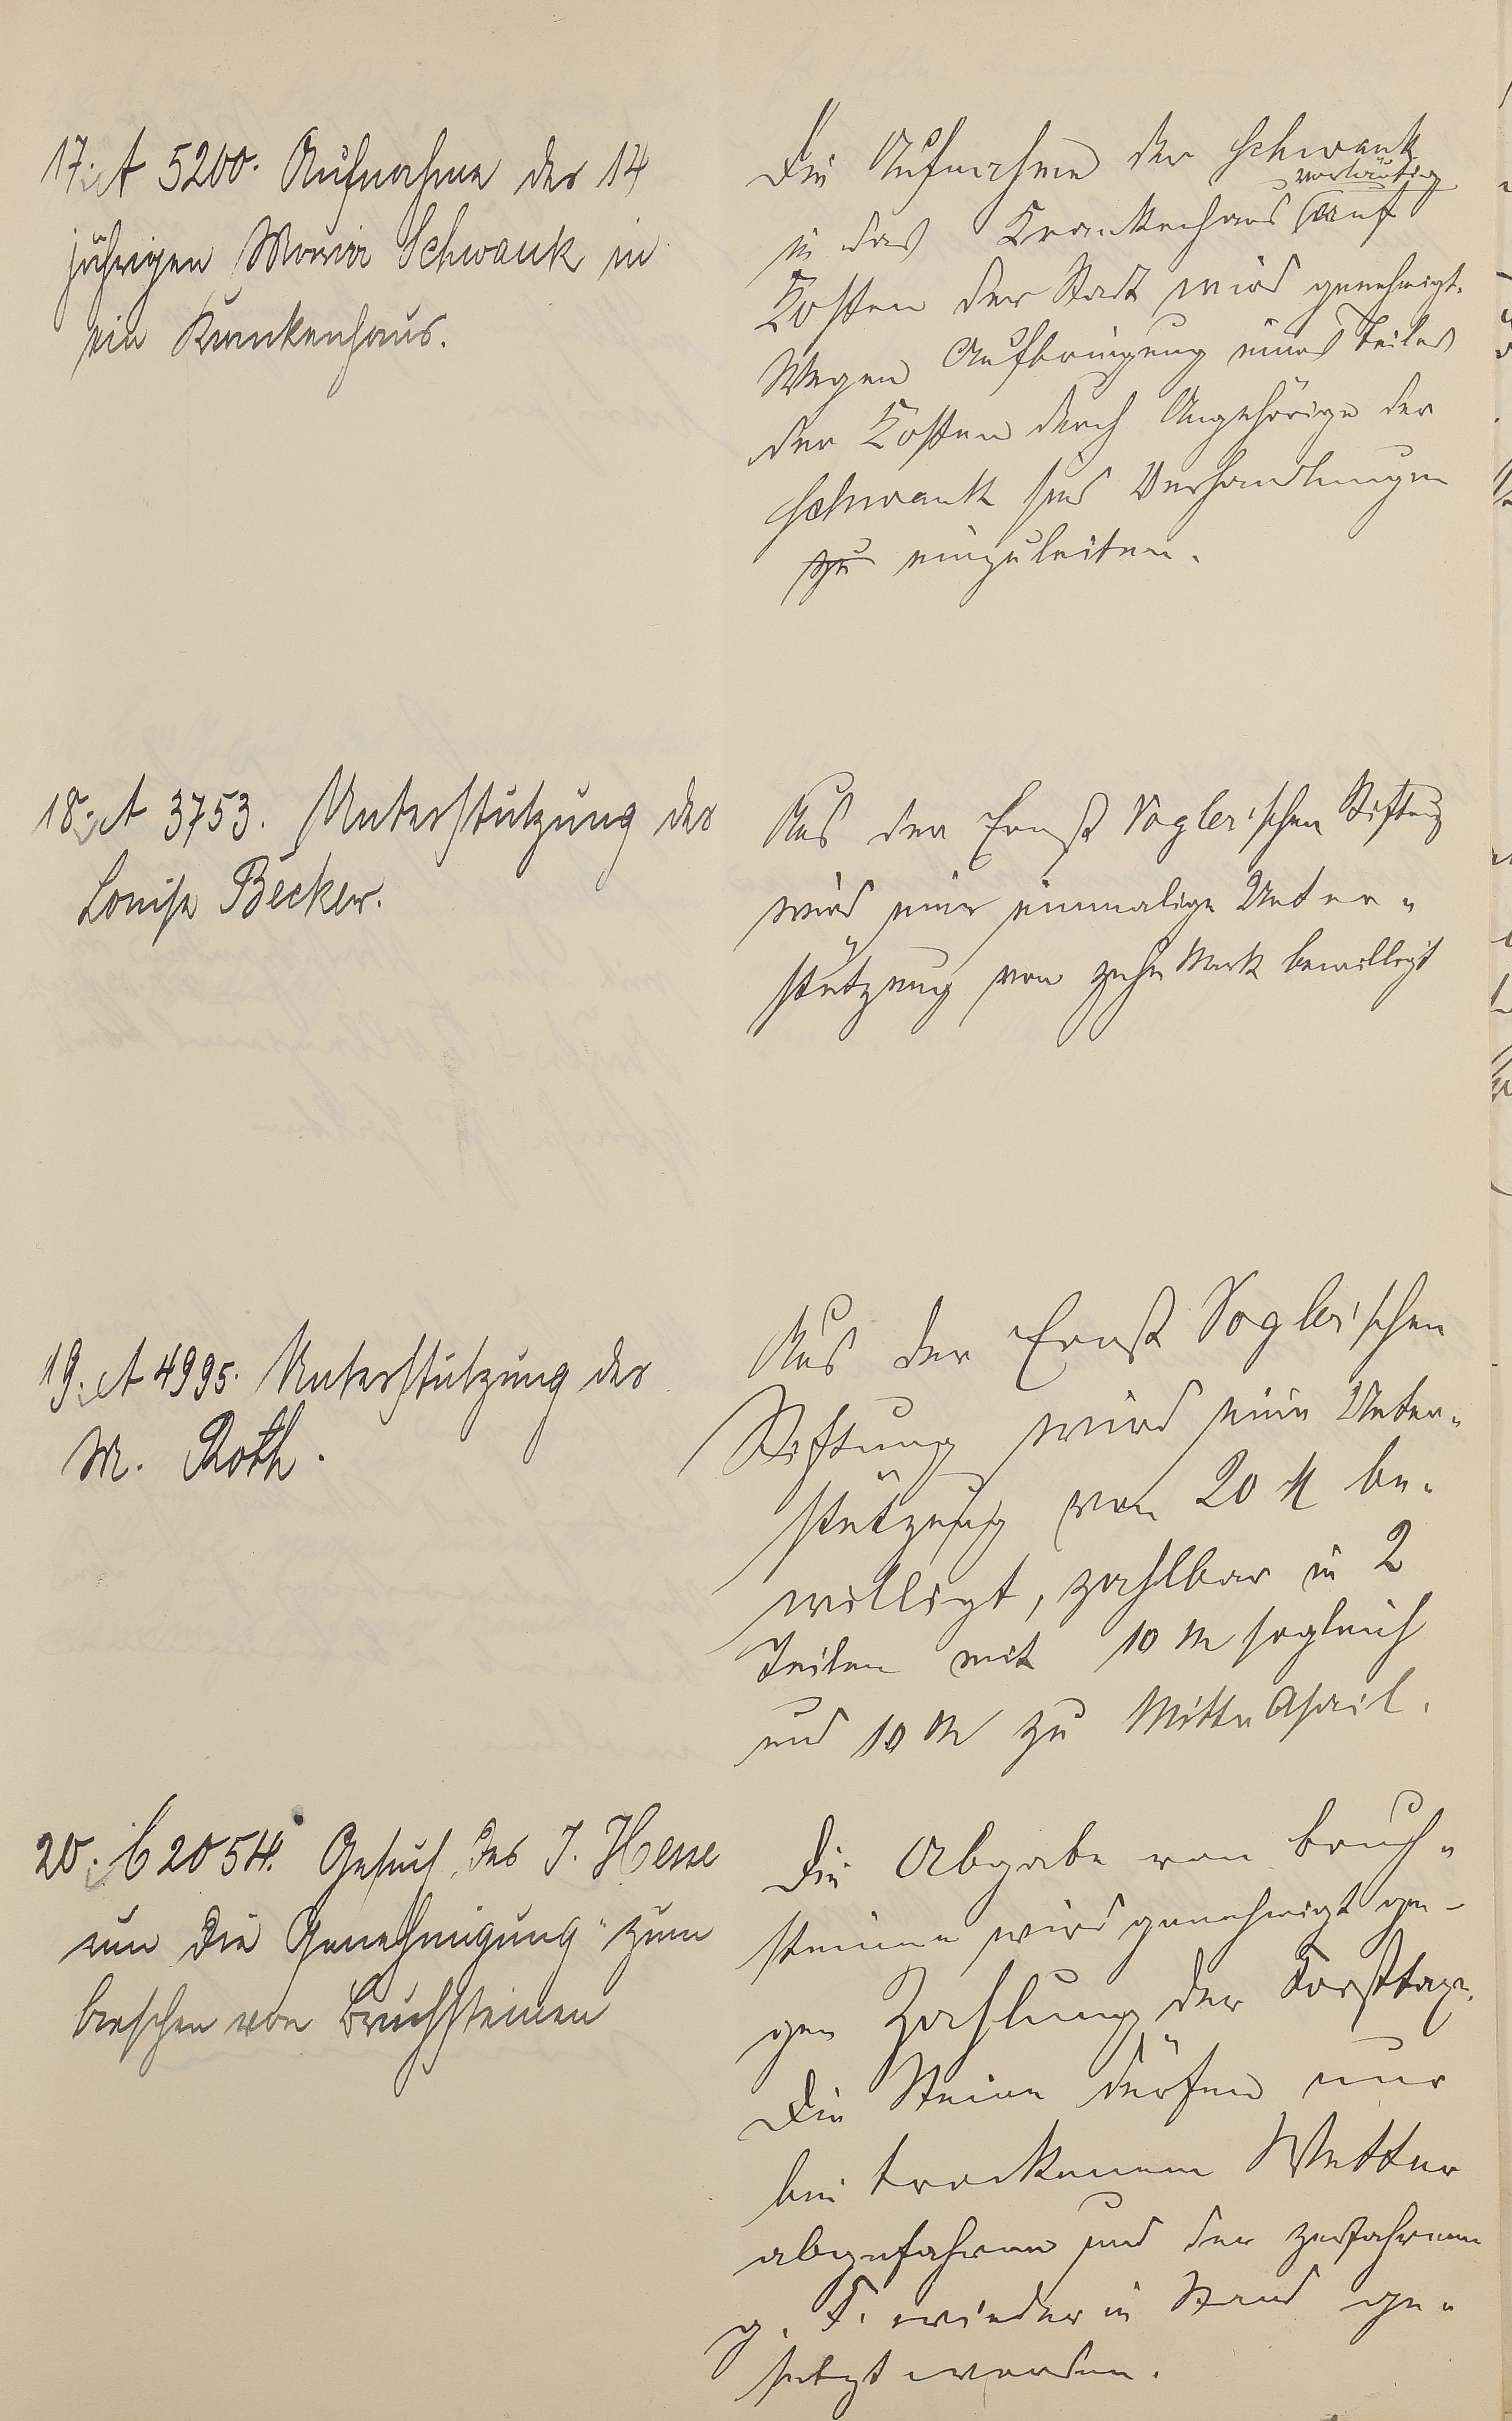 17. A 5200. Aufnahme der 14
jährigen Maria Schwank in
ein Krankenhaus.
Die Aufnahme der Schwank
vorläufig
in das Krankenhaus auf
Kosten der Stadt wird genehmigt.
Wegen Aufbringung eines Teiles
der Kosten durch Angehörige der
Schwank sind Verhandlungen
zu einzuleiten.
18. A 3753. Unterstützung der
Louise Becker.
Aus der Ernst Vogler'schen Stiftung
wird eine einmalige Unter-
stützung von zehn Mark bewilligt
19. A 4995. Unterstützung der
M. Roth.
Aus der Ernst Vogler'schen
Stiftung wird eine Unter-
stützung von 20 M be-
willigt, zahlbar in 2
Teilen mit 10 M sogleich
und 10 M zu Mitte April.
20. B 2054. Gesuch des J. Hesse
um die Genehmigung zum
brechen von Bruchsteinen
Die Abgabe von Bruch-
steinen wird genehmigt ge-
gen Zahlung der Forsttaxe.
Die Steine dürfen nur
bei trockenem Wetter
abgefahren und der zerfahrene
g. F. wieder in Stand ge-
setzt werden.